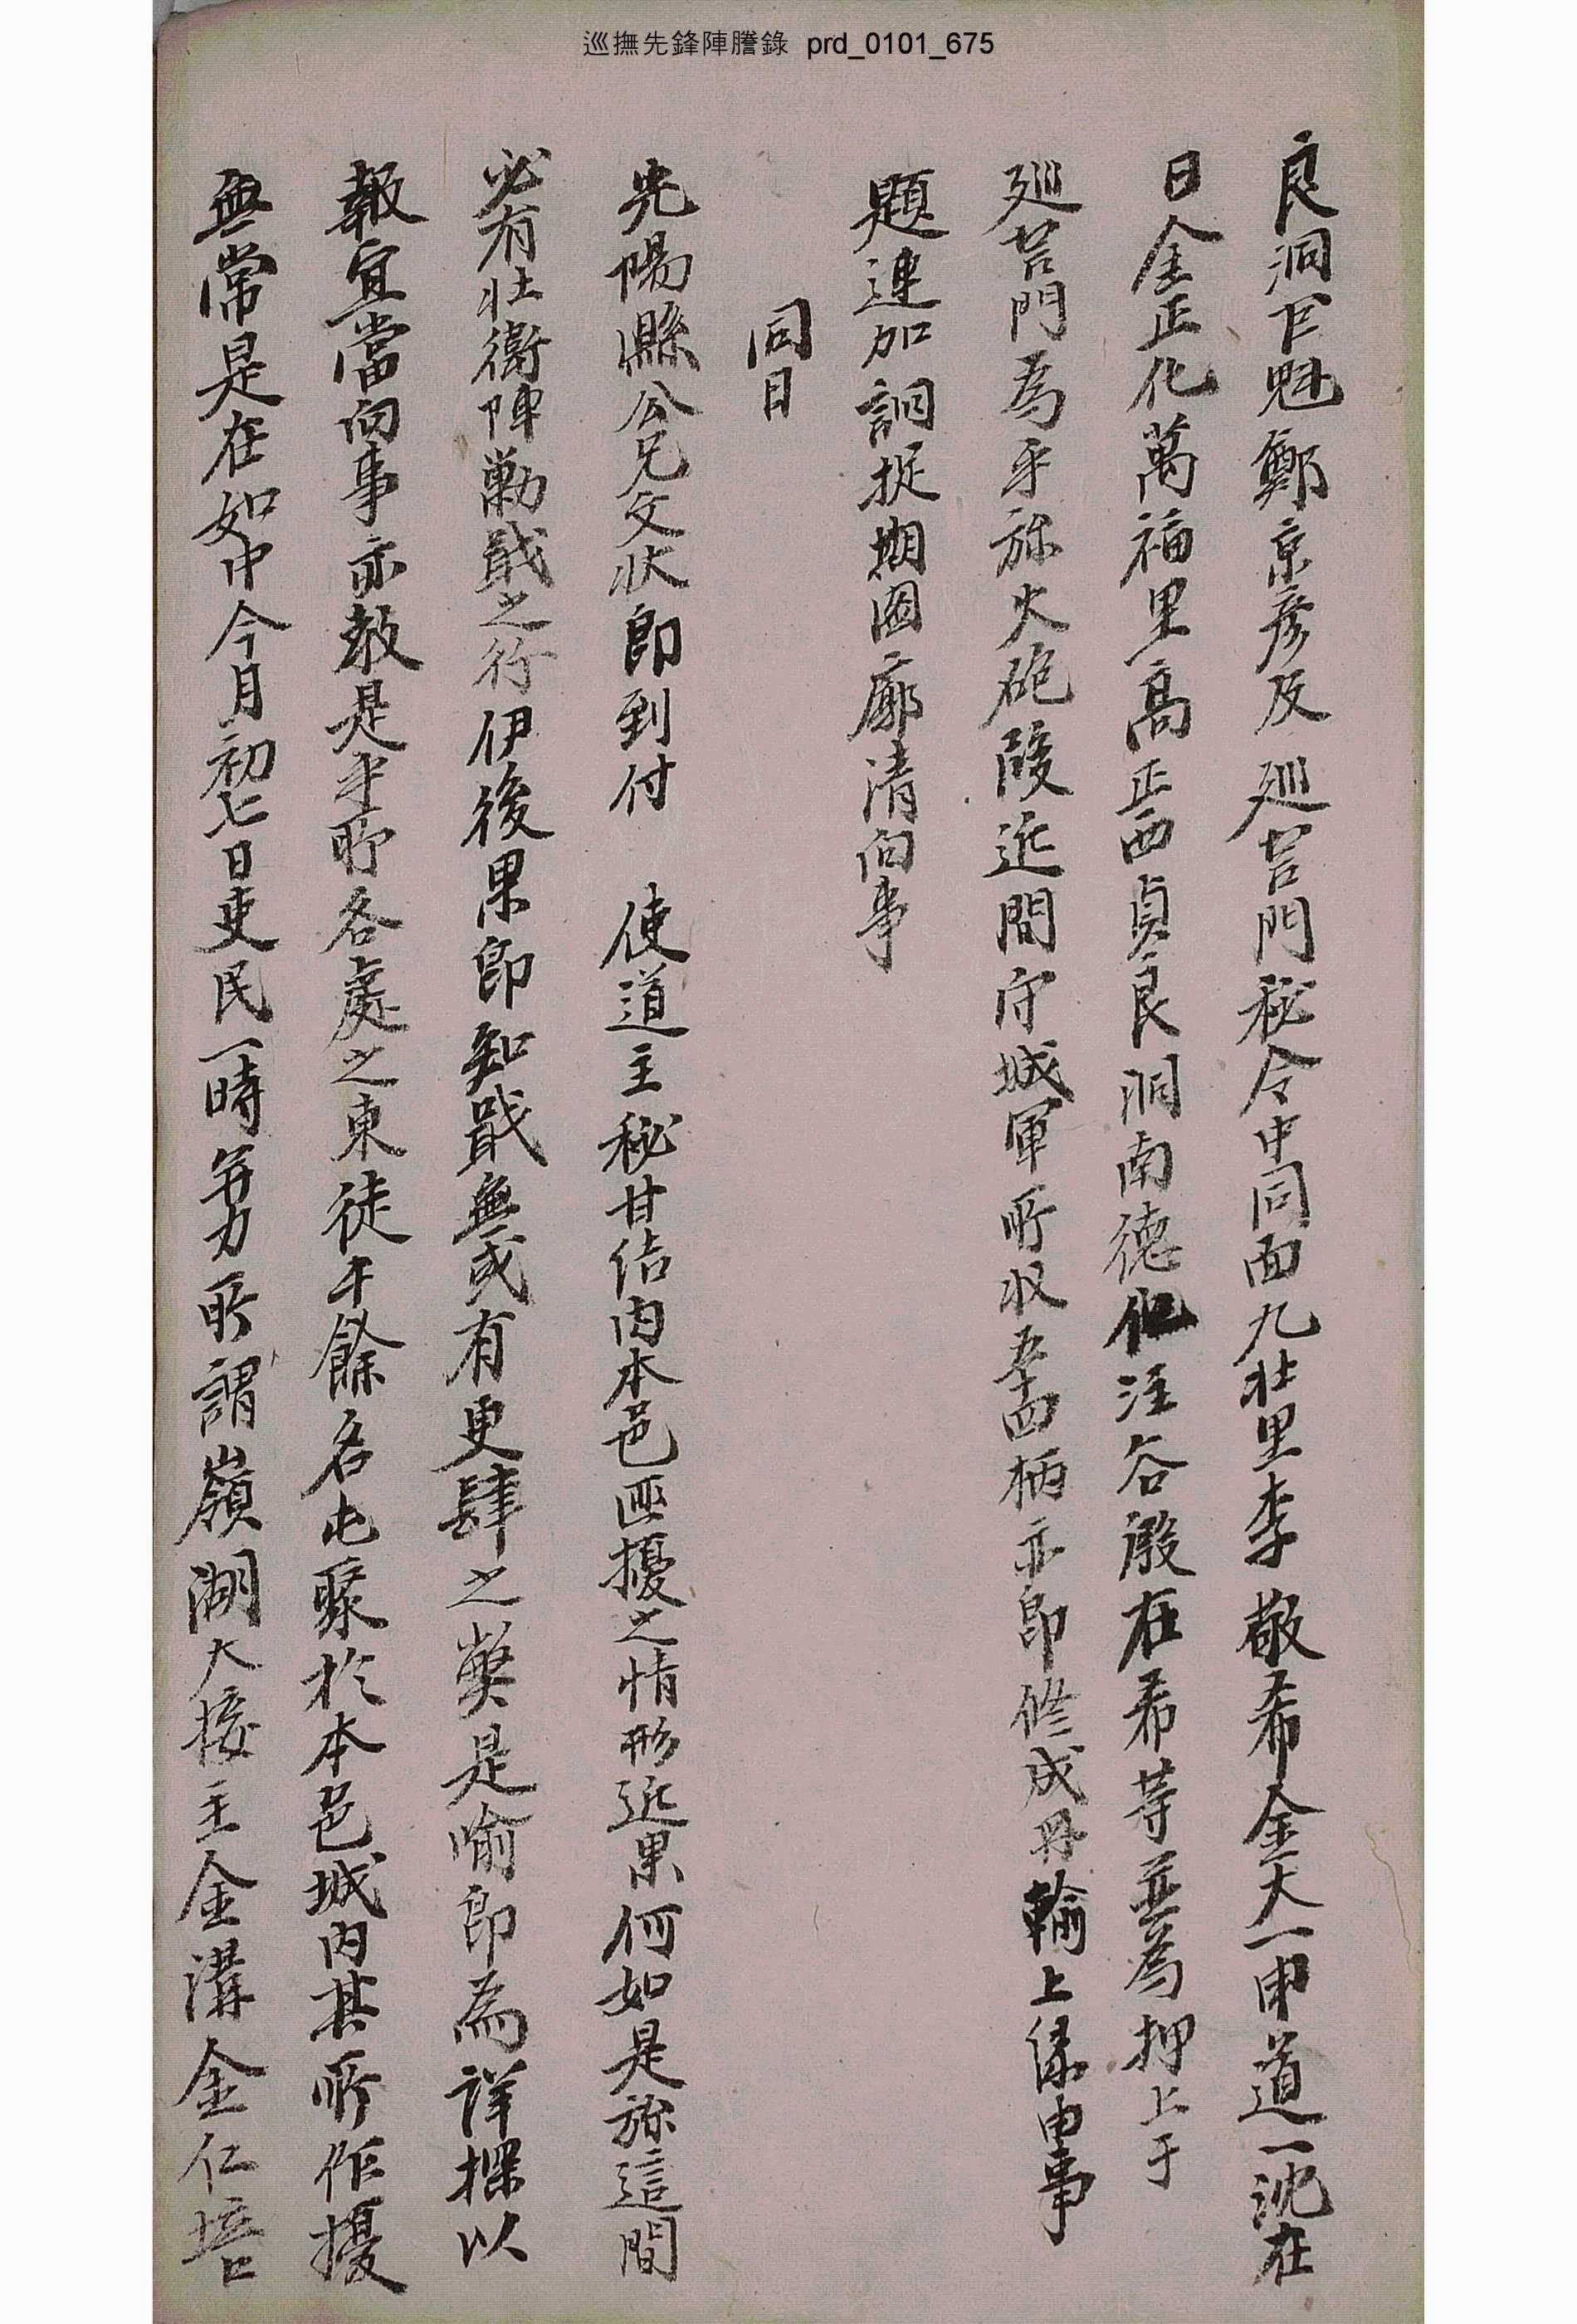 巡撫先鋒陣謄錄 prd_0101_675
良洞包魁鄭京彦及 巡營門秘令中同面九壯里李敬希金大一申道一沈在
日金正化萬福里高正西貞良洞南德化注谷殷在希等並爲押上于
巡營門爲乎旀火砲段近間守城軍所收五十四柄亦即修成冊輸上緣由事
題連加詗捉期圖廓清向事
同日
光陽縣公兄文狀即到付 使道主秘甘結內本邑匪擾之情形近果何如是旀這間
必有壯衛陣勦戢之行伊後果即知戢無或有更肆之獘是喩即爲詳探以
報宜當向事亦敎是乎所各處之東徒千餘名屯聚於本邑城內其所作擾
無常是在如中今月初七日吏民一時并力所謂嶺湖大接主金溝金仁培